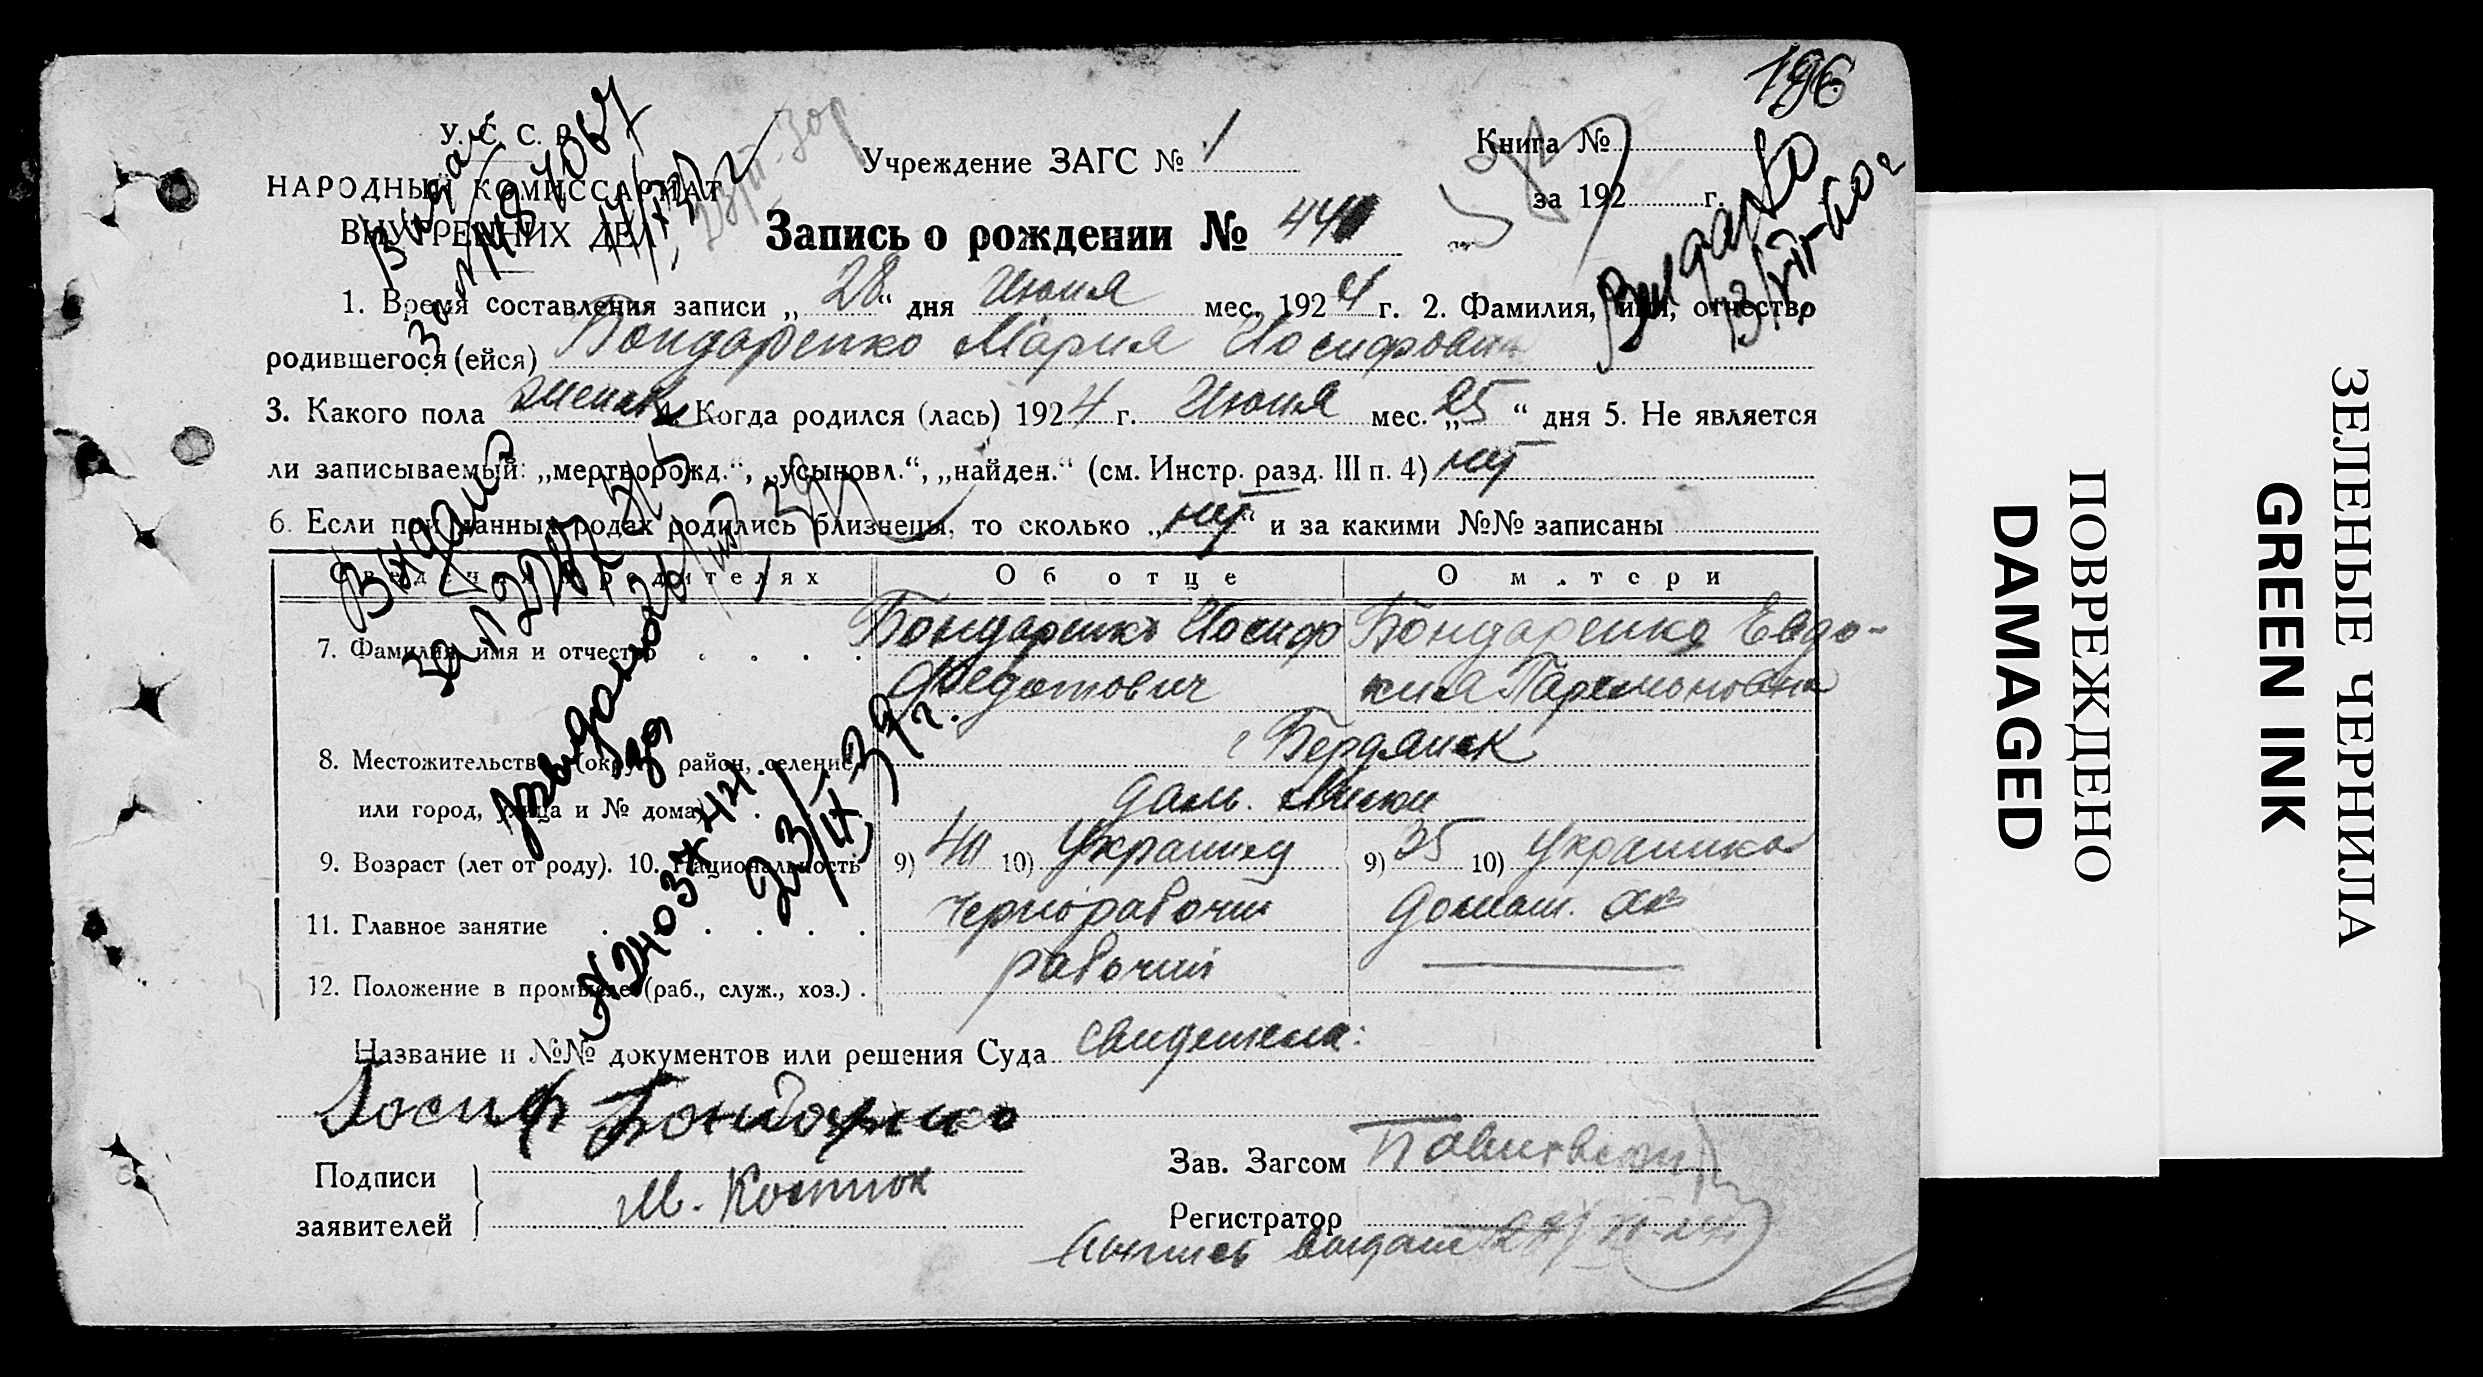 196
У. С. С. Р.
НАРОДНЫЙ КОМИССАРИАТ
ВНУТРЕННИХ ДЕЛ
Учреждение ЗАГС № 1
Книга №
за 192 г.
Запись о рождении № 441
1. Время составления записи „ 28 “ дня Июня мес. 1924 г. 2. Фамилия, имя, отчество
родившегося (ейся) Бондаренко Мария Иосифовна
3. Какого пола женск 4. Когда родился (лась) 1924 г. Июня мес. „ 25 “ дня 5. Не является
ли записываемый: „мертворожд.“, „усыновл.“, „найден.“ (см. Инстр. разд. III п. 4) нет
6. Если при данных родах родились близнецы, то сколько „ нет “ и за какими №№ записаны
Сведения о родителях Об отце О матери
7. Фамилия, имя и отчество Бондаренко Иосиф Бондаренко Евдо-
Федотович кия Парамоновна
8. Местожительство (округ, район, селение, г Бердянск
или город, улица и № дома)
9. Возраст (лет от роду). 10. Национальность 9) 40 10) Украинец 9) 35 10) Украинка
11. Главное занятие Чернорабочий домаш. хоз
12. Положение в промысле (раб., служ., хоз.) рабочий
Название и №№ документов или решения Суда свидетели:
Иосиф Бондаренко
Подписи
заявителей
М. Костюк
Зав. Загсом
Регистратор
Видано
Видано
ЗЕЛЕНЫЕ ЧЕРНИЛА
GREEN INK
ПОВРЕЖДЕНО
DAMAGED